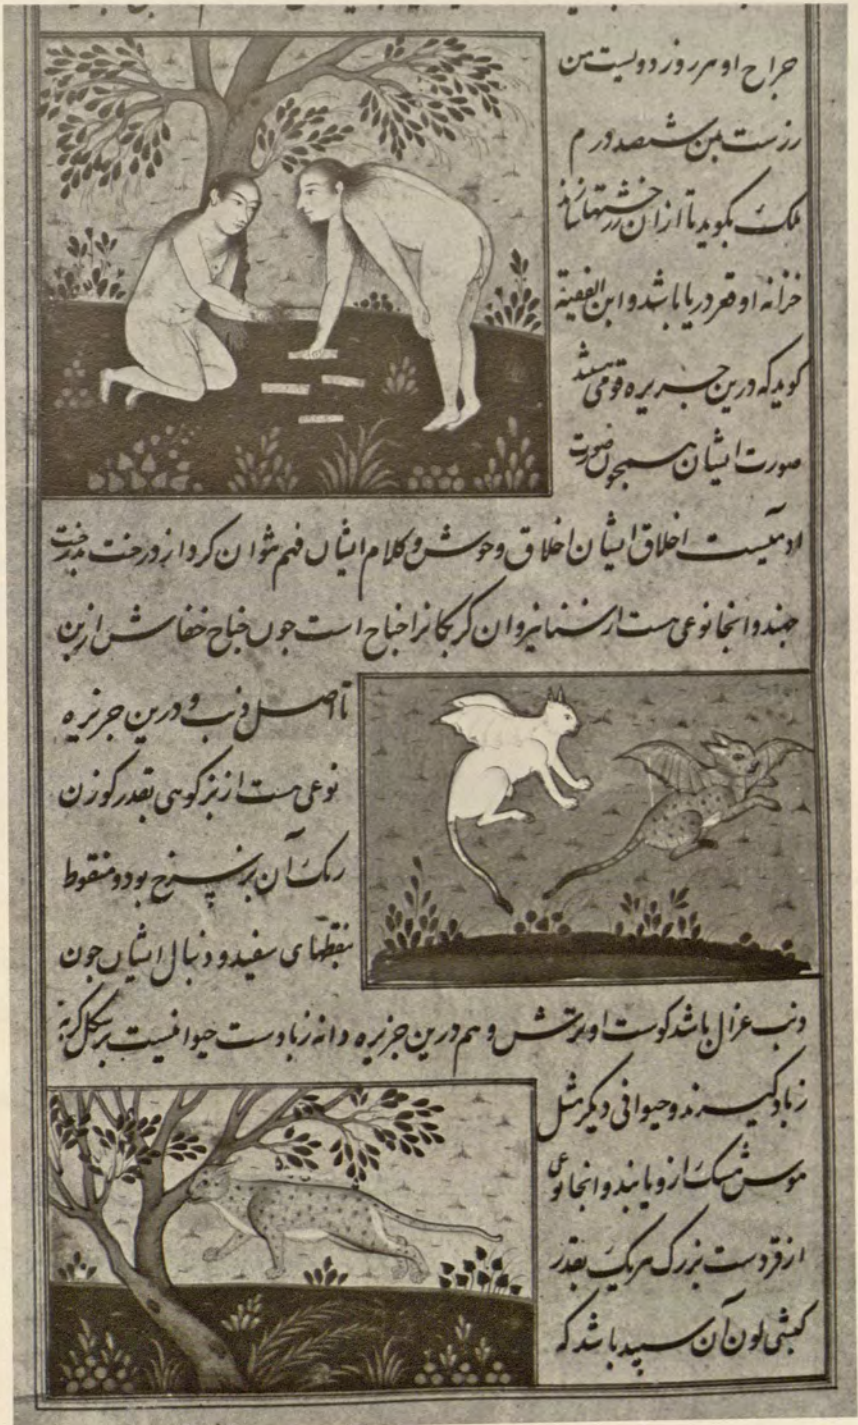 خراج او هر روز دویست من
زرست بمن ششصد درم
ملک بکوید تا ازان زر خشتها سازند
خزانه او قعر دریا باشد و ابن الفقیه
کوید که درین جزیره قومی هستند
صورت ایشان همجون صورت
ادمیست اخلاق ایشان اخلاق وحوش و کلام ایشان فهم نتوان کرد از درخت بدرخت
جهند و انجا نوعی هست از سنانیر و ان کربکانرا جناح است جون جناح خفاش از بن
تا اصل ذنب و درین جزیره
نوعی هست از بز کوهی بقدر کوزن
رنک آن بر سرخ بود و منقوط
بنقطهای سفید و دنبال ایشان جون
ذنب غزال باشد کوشت او ترش و هم درین جزیره دانه زبادست حیوانیست بر شکل کربه
زباد کیرند و حیوانی دیکر مثل
موش مشک ازو یابند و انجا نوعی
از قردست بزرک هریک بقدر
کبشی لون آن سپید باشد که